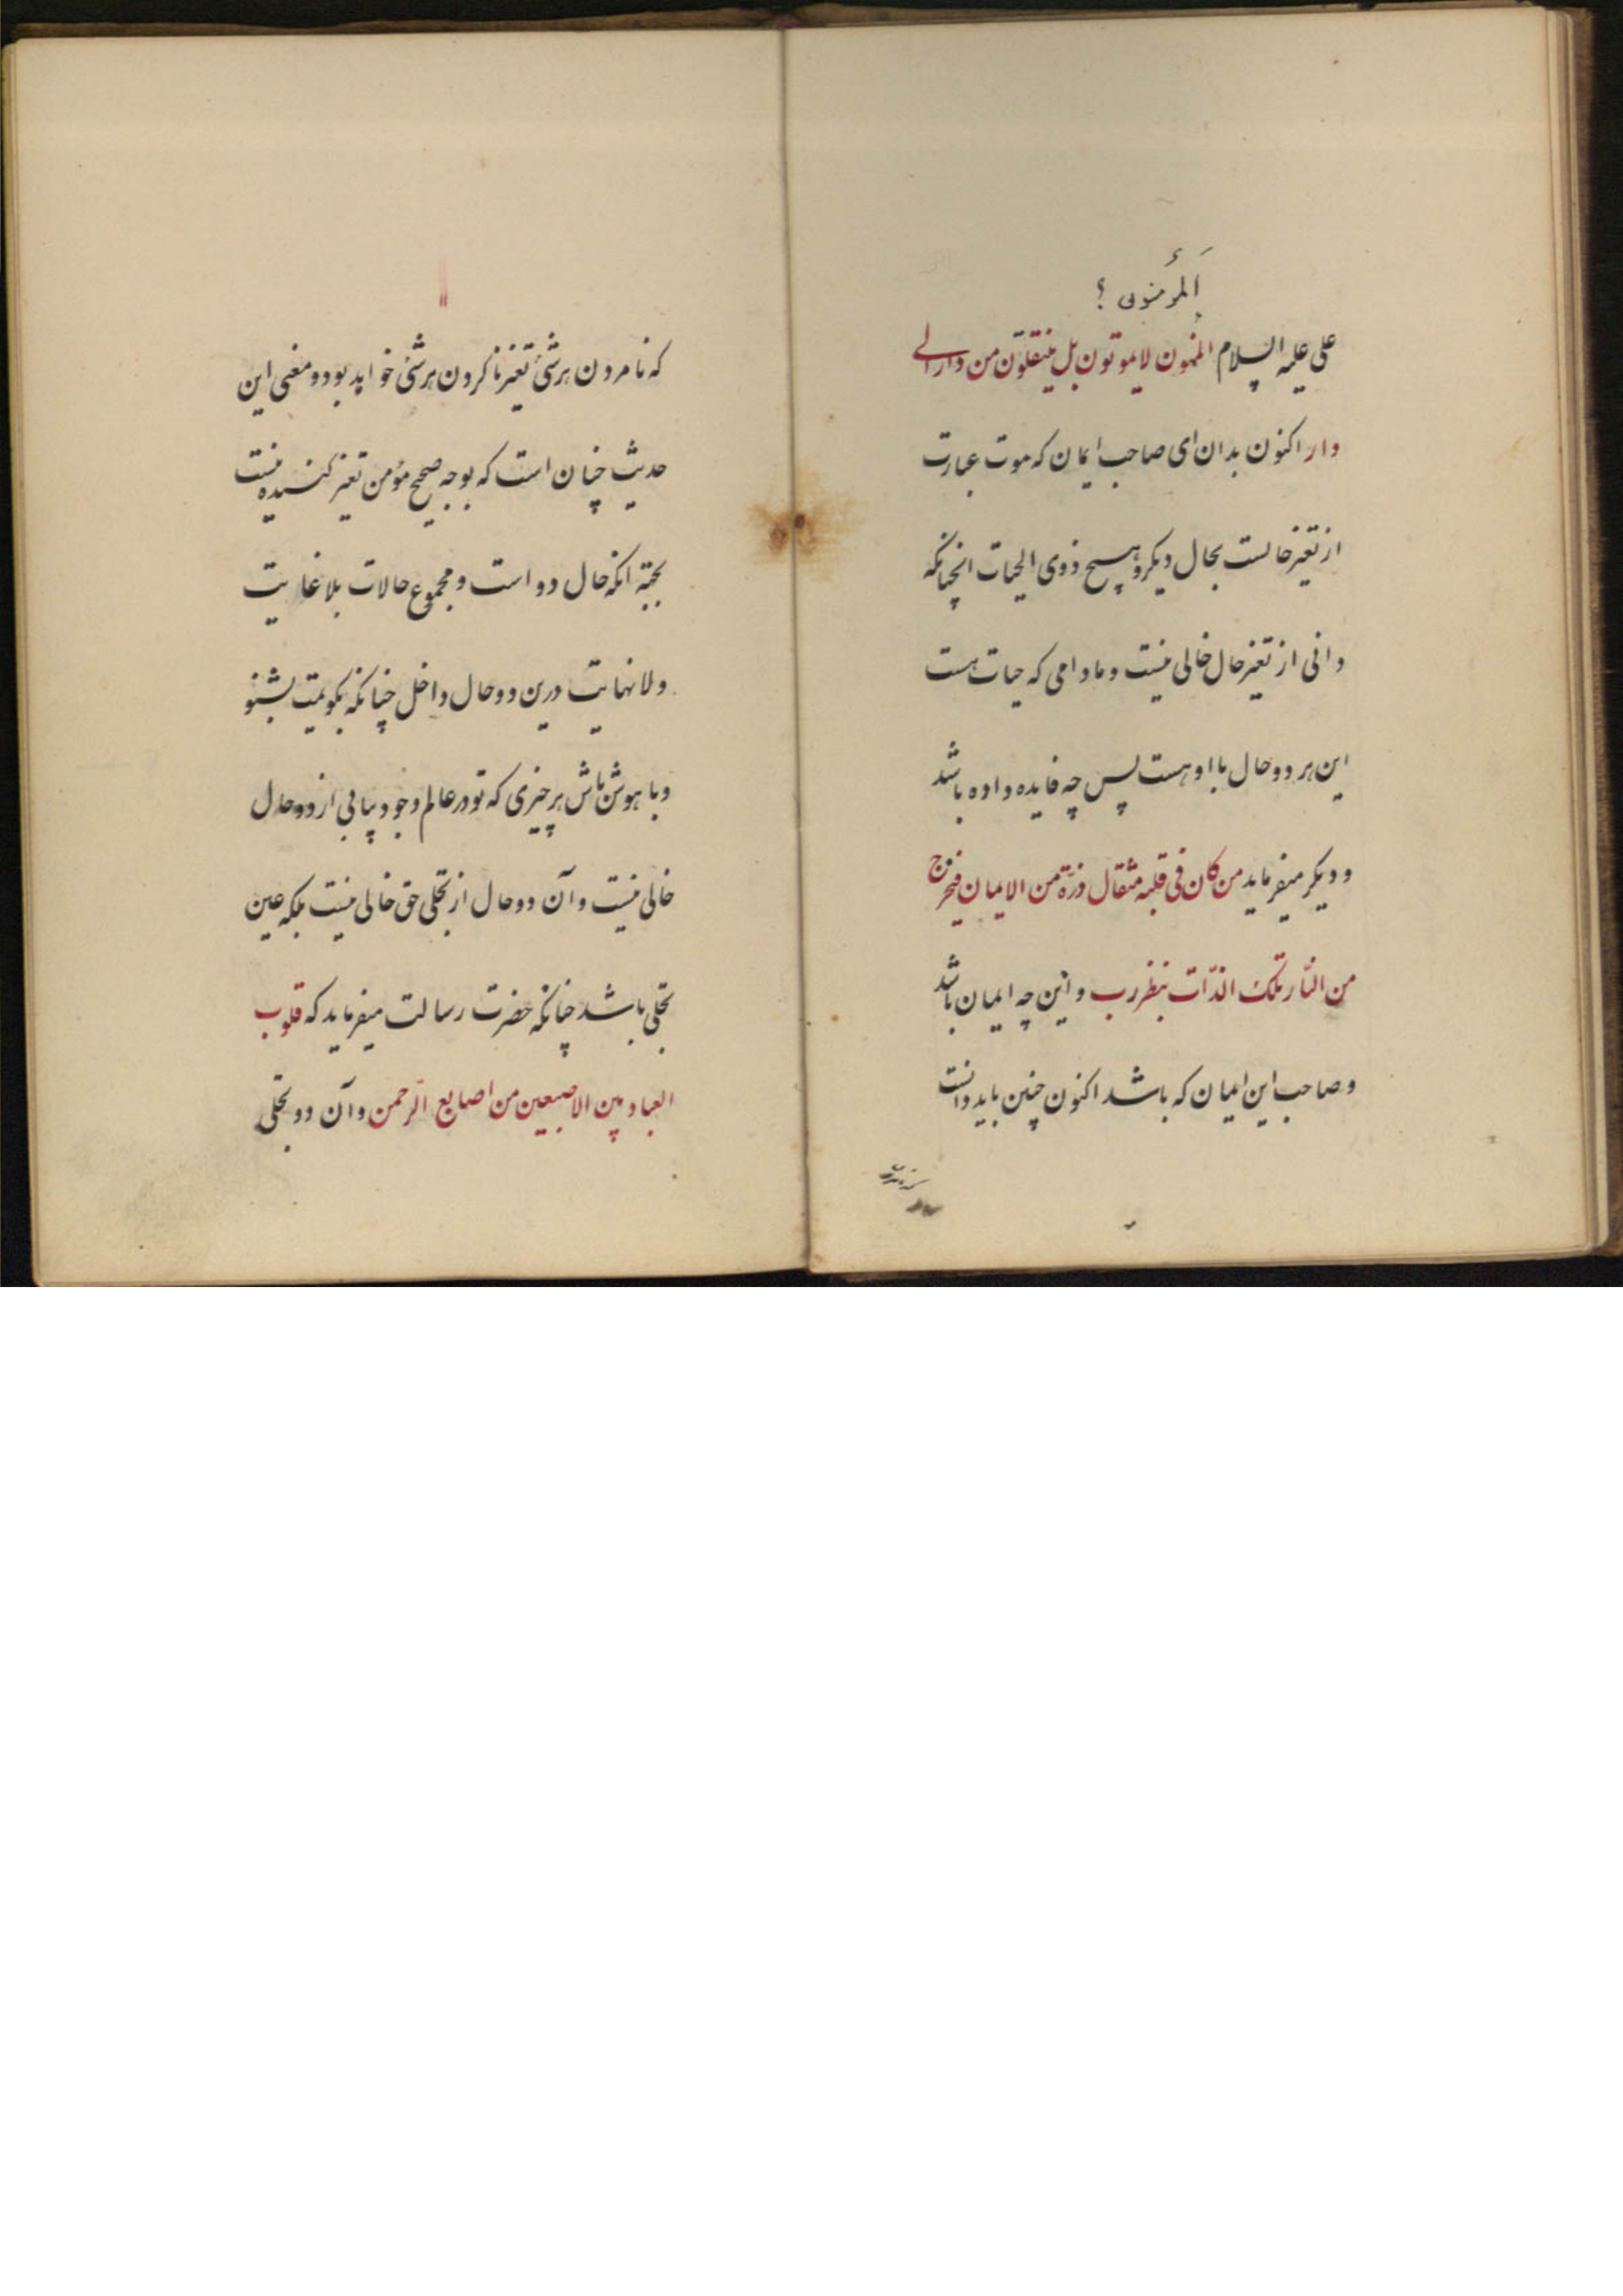 اَلمُؤمنون ؟
علی علیه السلام المنهون لایموتون بل ینتقلون من دار الی
دار اکنون بدان ای صاحب ایمان که موت عبارت
از تغیر حالست بحال دیکر و هیچ ذوی الحیات انچنانکه
دانی از تغیر حال خالی نیست و مادامی که حیات هست
این هر دو حال با او هست پس چه فایده داده باشد
و دیکر میفرماید من کان فی قلبه مثقال ذرّة من الایمان فیخرج
من النّار تلک الذّات بنظر رب و این چه ایمان باشد
و صاحب این ایمان که باشد اکنون چنین باید دانست
که نامردن هر شئ تغیر ناکردن هر شئ خواهد بود و معنی این
حدیث چنان است که بوجه صحیح مؤمن تغیر کننده نیست
بجهته انکه حال دو است و مجموع حالات بلا غایت
و لا نهایت درین دو حال داخل چنانکه بکویمت بشنو
و با هوش باش هر چیزی که تو در عالم وجود بیابی از دو حال
خالی نیست و آن دو حال از تجلی حق خالی نیست بلکه عین
تجلی باشد چنانکه حضرت رسالت میفرماید که قلوب
العباد بین الاصبعین من اصابع الرّحمن و آن دو تجلی